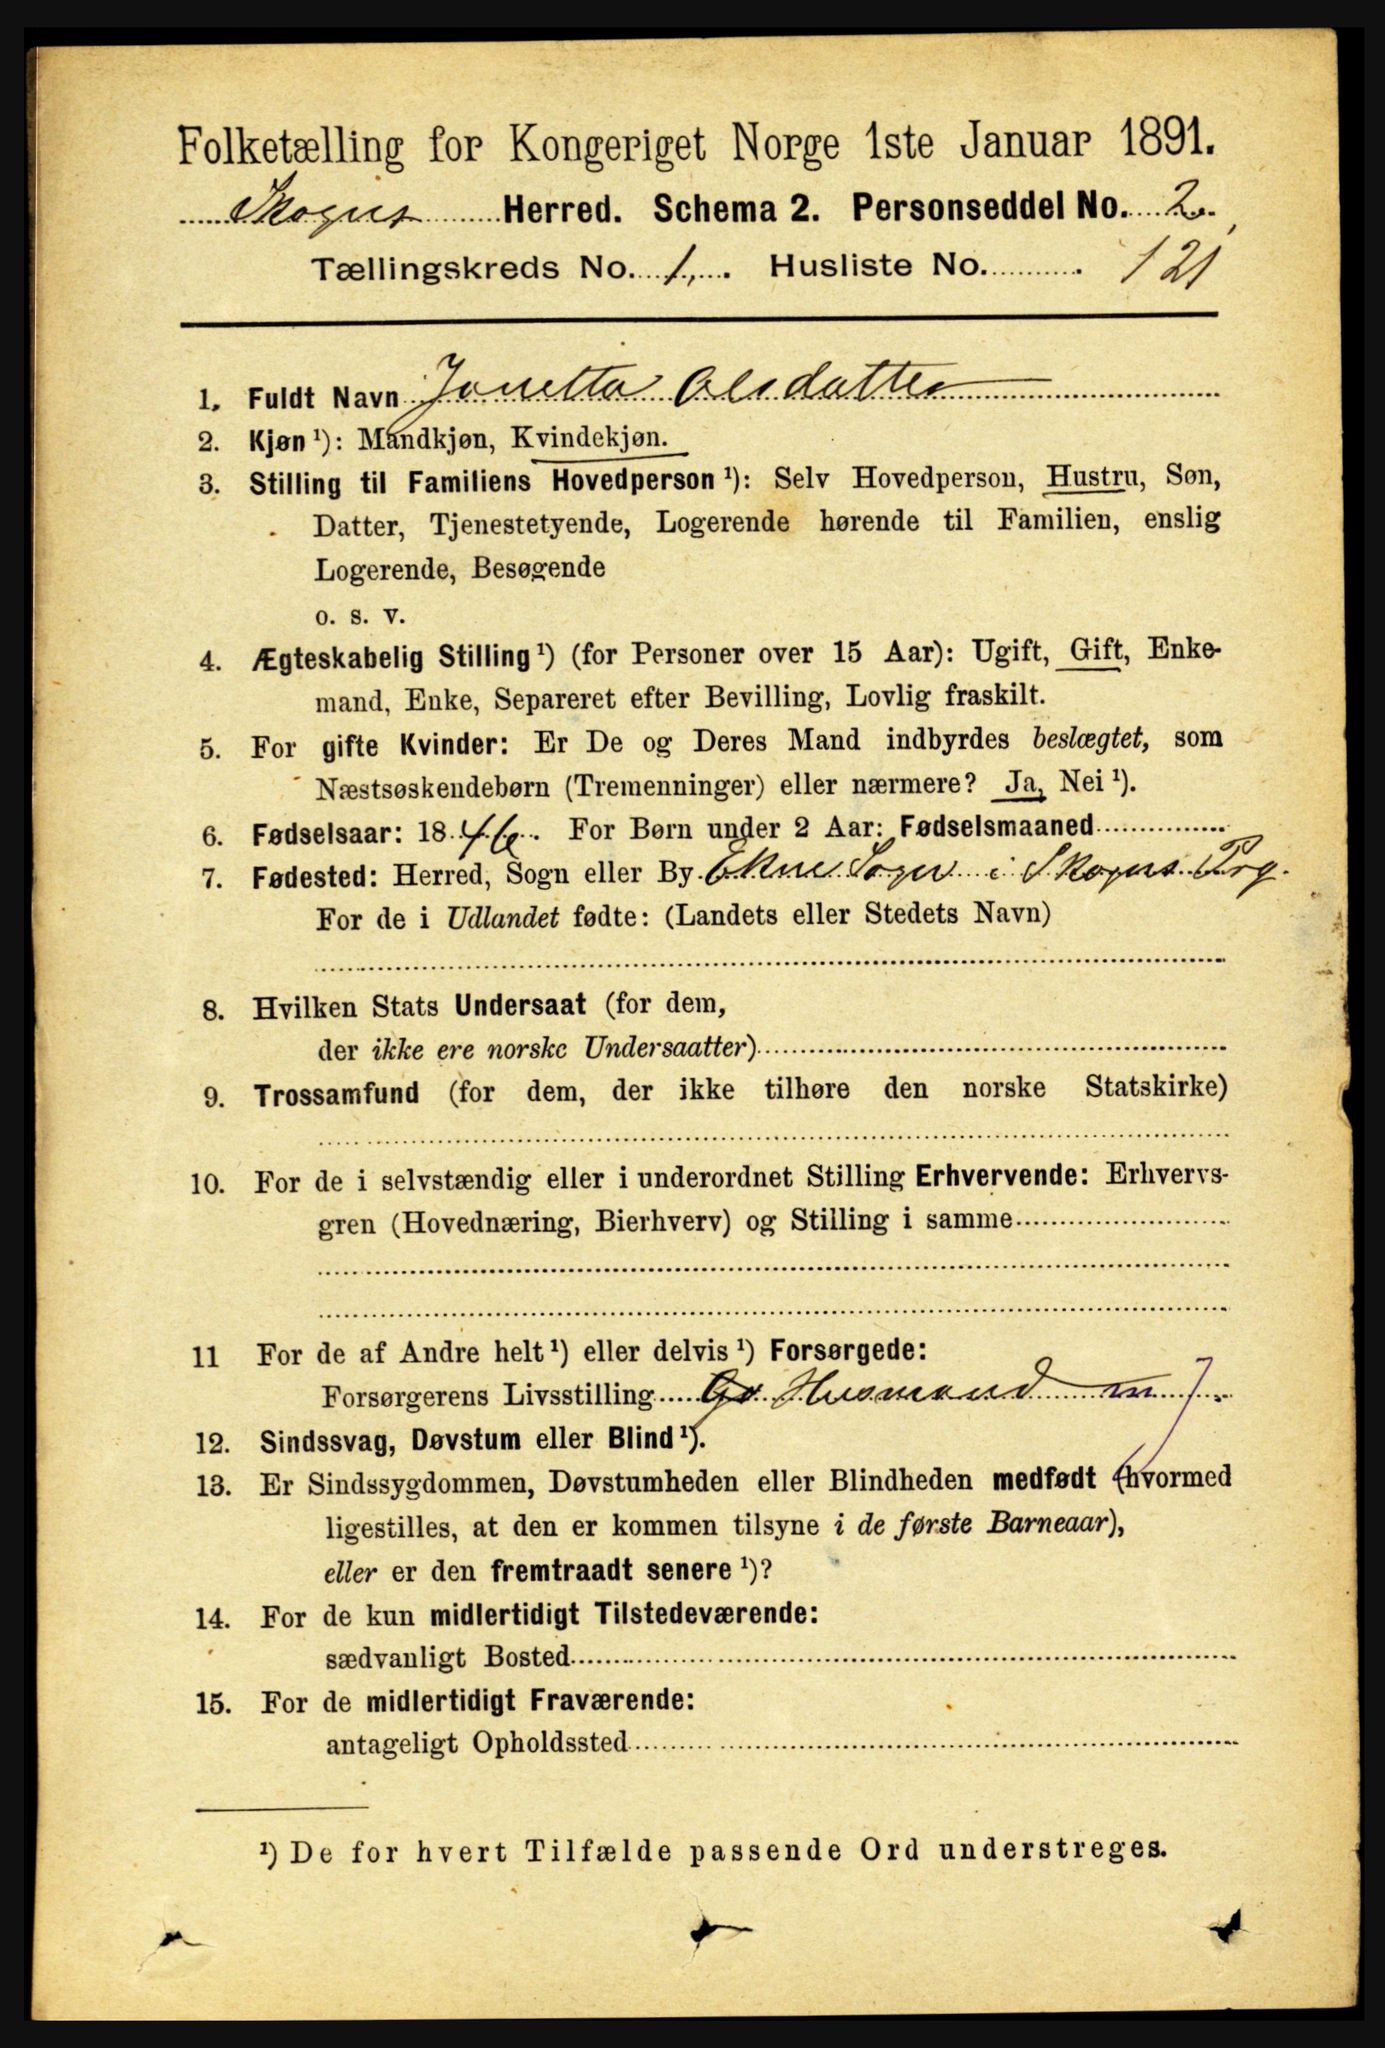 Folketælling for Kongeriget Norge 1ste Januar 1891.
Skogns Herred. Schema 2. Personseddel No. 2.
Tællingskreds No. 1. Husliste No. 121
1. Fuldt Navn Jonetta Olsdatter
2. Kjøn ¹): Mandkjøn, Kvindekjøn.
3. Stilling til Familiens Hovedperson ¹): Selv Hovedperson, Hustru, Søn,
Datter, Tjenestetyende, Logerende hørende til Familien, enslig
Logerende, Besøgende
o. s. v.
4. Ægteskabelig Stilling ¹) (for Personer over 15 Aar): Ugift, Gift, Enke-
mand, Enke, Separeret efter Bevilling, Lovlig fraskilt.
5. For gifte Kvinder: Er De og Deres Mand indbyrdes beslægtet, som
Næstsøskendebørn (Tremenninger) eller nærmere? Ja, Nei ¹).
6. Fødselsaar: 1846. For Børn under 2 Aar: Fødselsmaaned
7. Fødested: Herred, Sogn eller By Ekne Sogn i Skogns Prg.
For de i Udlandet fødte: (Landets eller Stedets Navn)
8. Hvilken Stats Undersaat (for dem,
der ikke ere norske Undersaatter)
9. Trossamfund (for dem, der ikke tilhøre den norske Statskirke)
10. For de i selvstændig eller i underordnet Stilling Erhvervende: Erhvervs-
gren (Hovednæring, Bierhverv) og Stilling i samme
11 For de af Andre helt ¹) eller delvis ¹) Forsørgede:
Forsørgerens Livsstilling Husmand m J.
12. Sindssvag, Døvstum eller Blind ¹).
13. Er Sindssygdommen, Døvstumheden eller Blindheden medfødt (hvormed
ligestilles, at den er kommen tilsyne i de første Barneaar),
eller er den fremtraadt senere ¹)?
14. For de kun midlertidigt Tilstedeværende:
sædvanligt Bosted
15. For de midlertidigt Fraværende:
antageligt Opholdssted
¹) De for hvert Tilfælde passende Ord understreges.